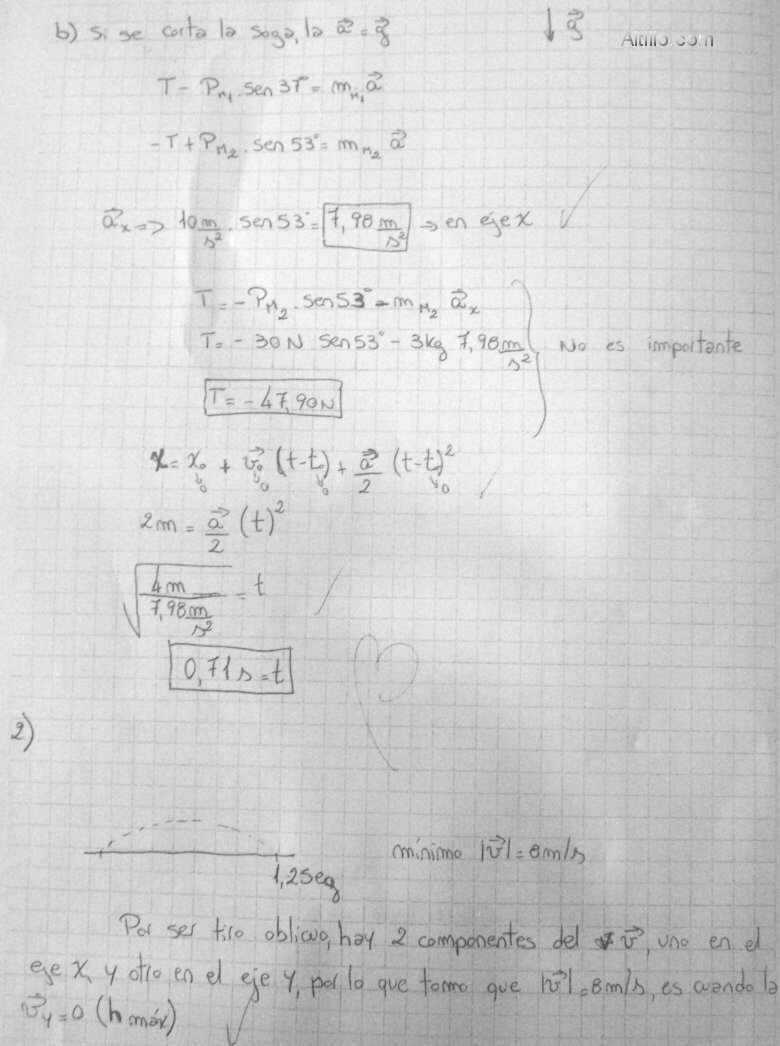 b) si se corta la soga, la a⃗ = g⃗
↓ g⃗
T - P_M₁ . sen 37° = m_M₁ a⃗
-T + P_M₂ . sen 53° = m_M₂ a⃗
a⃗x => 10 m/s² . sen 53° = 7,98 m/s² → en eje x
T = - P_M₂ . sen 53° - m_M₂ a⃗x
T = - 30 N sen 53° - 3 kg 7,98 m/s²
No es importante
T = - 47,90 N
x = x₀ + v⃗₀ (t - t₀) + a⃗/2 (t - t₀)²
↓0 ↓0 ↓0 ↓0
2m = a⃗/2 (t)²
√(4m / 7,98 m/s²) = t
0,71 s = t
2)
mínimo |v⃗| = 8 m/s
1,2 seg
Por ser tiro oblicuo, hay 2 componentes del v⃗, uno en el
eje X, y otro en el eje Y, por lo que tomo que |v⃗| = 8 m/s, es cuando la
v⃗y = 0 (h máx)